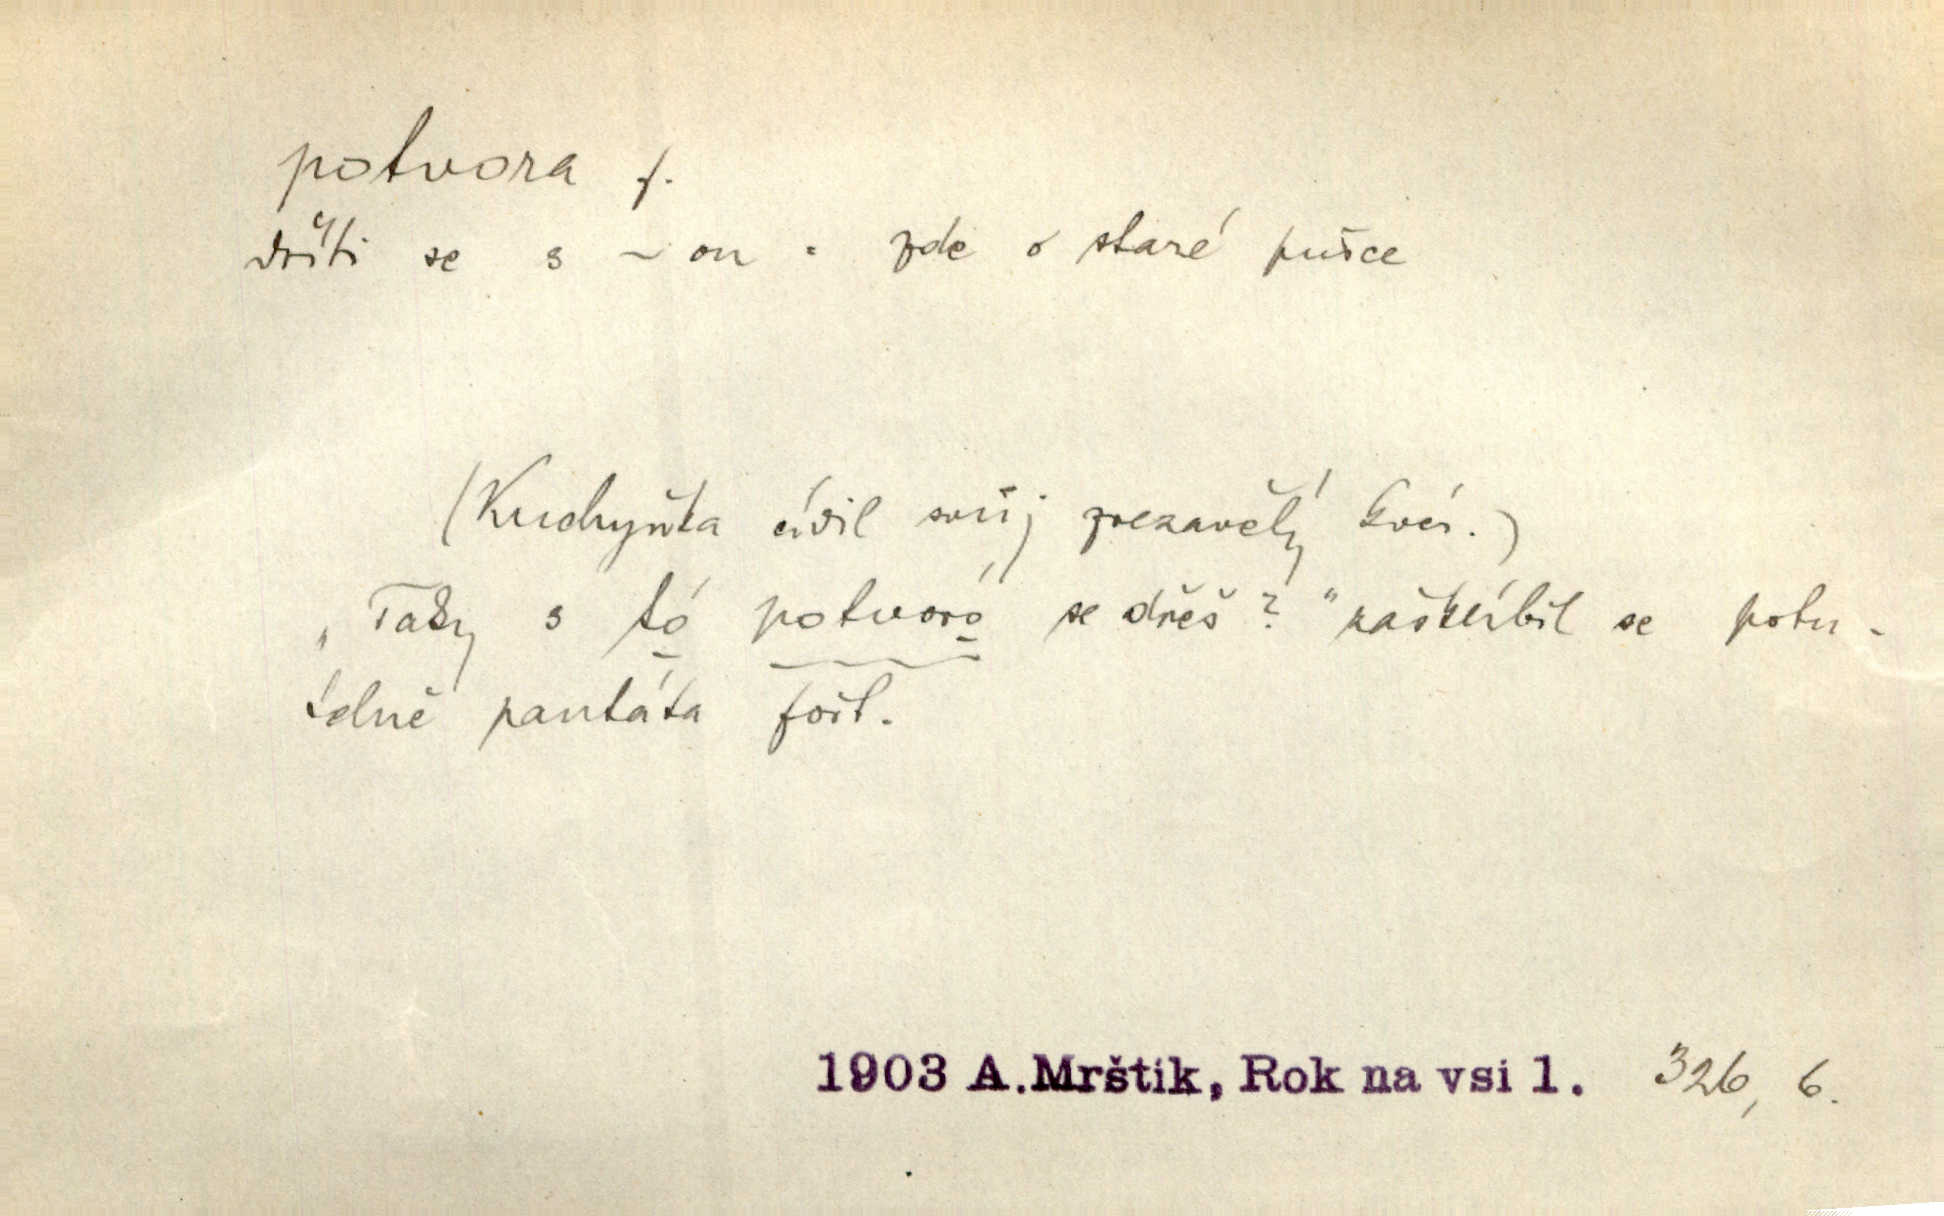 potvora f.
dříti se s ~ou = zde o staré pušce
(Kuchyňka cídil svůj zrezavělý kvér.)
„Taky s tó potvoró se dřeš?" zaškľíbil se potu-
tedlně pantáta fořt.
1903 A. Mrštík, Rok na vsi 1. 326, 6.